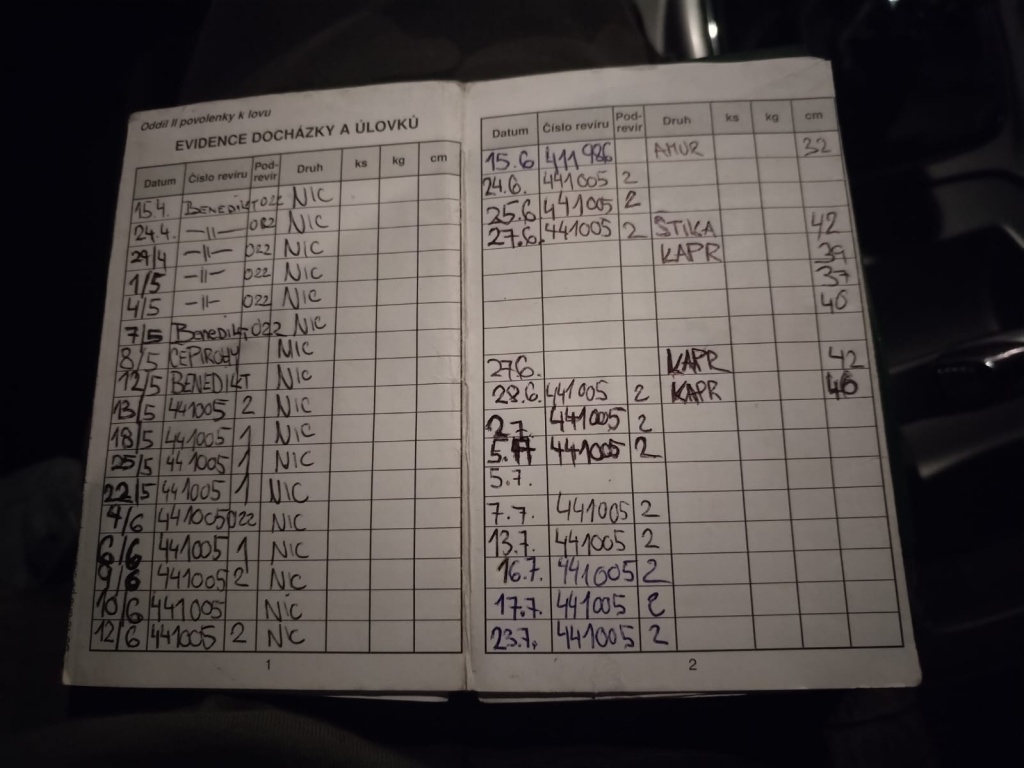 Oddíl II povolenky k lovu
EVIDENCE DOCHÁZKY A ÚLOVKŮ
Datum Číslo revíru Pod-revír Druh ks kg cm
15.4. BENEDIKT 022 NIC
24.4. –II– 022 NIC
29/4 –II– 022 NIC
1/5 –II– 022 NIC
4/5 –II– 022 NIC
7/5 Benedikt 022 NIC
8/5 CEPIROHY NIC
12/5 BENEDIKT NIC
13/5 441005 2 NIC
18/5 441005 1 NIC
25/5 441005 1 NIC
22/5 441005 1 NIC
4/6 441005 022 NIC
6/6 441005 1 NIC
9/6 441005 2 NIC
10/6 441005 NIC
12/6 441005 2 NIC
1
Datum Číslo revíru Pod-revír Druh ks kg cm
15.6 411 986 AMUR 32
24.6. 441005 2
25.6 441005 2
27.6. 441005 2 ŠTIKA 42
KAPR 39
37
40
27.6. KAPR 42
28.6. 441005 2 KAPR 46
2.7. 441005 2
5.7 441005 2
5.7.
7.7. 441005 2
13.7. 441005 2
16.7. 441005 2
17.7. 441005 2
23.7. 441005 2
2